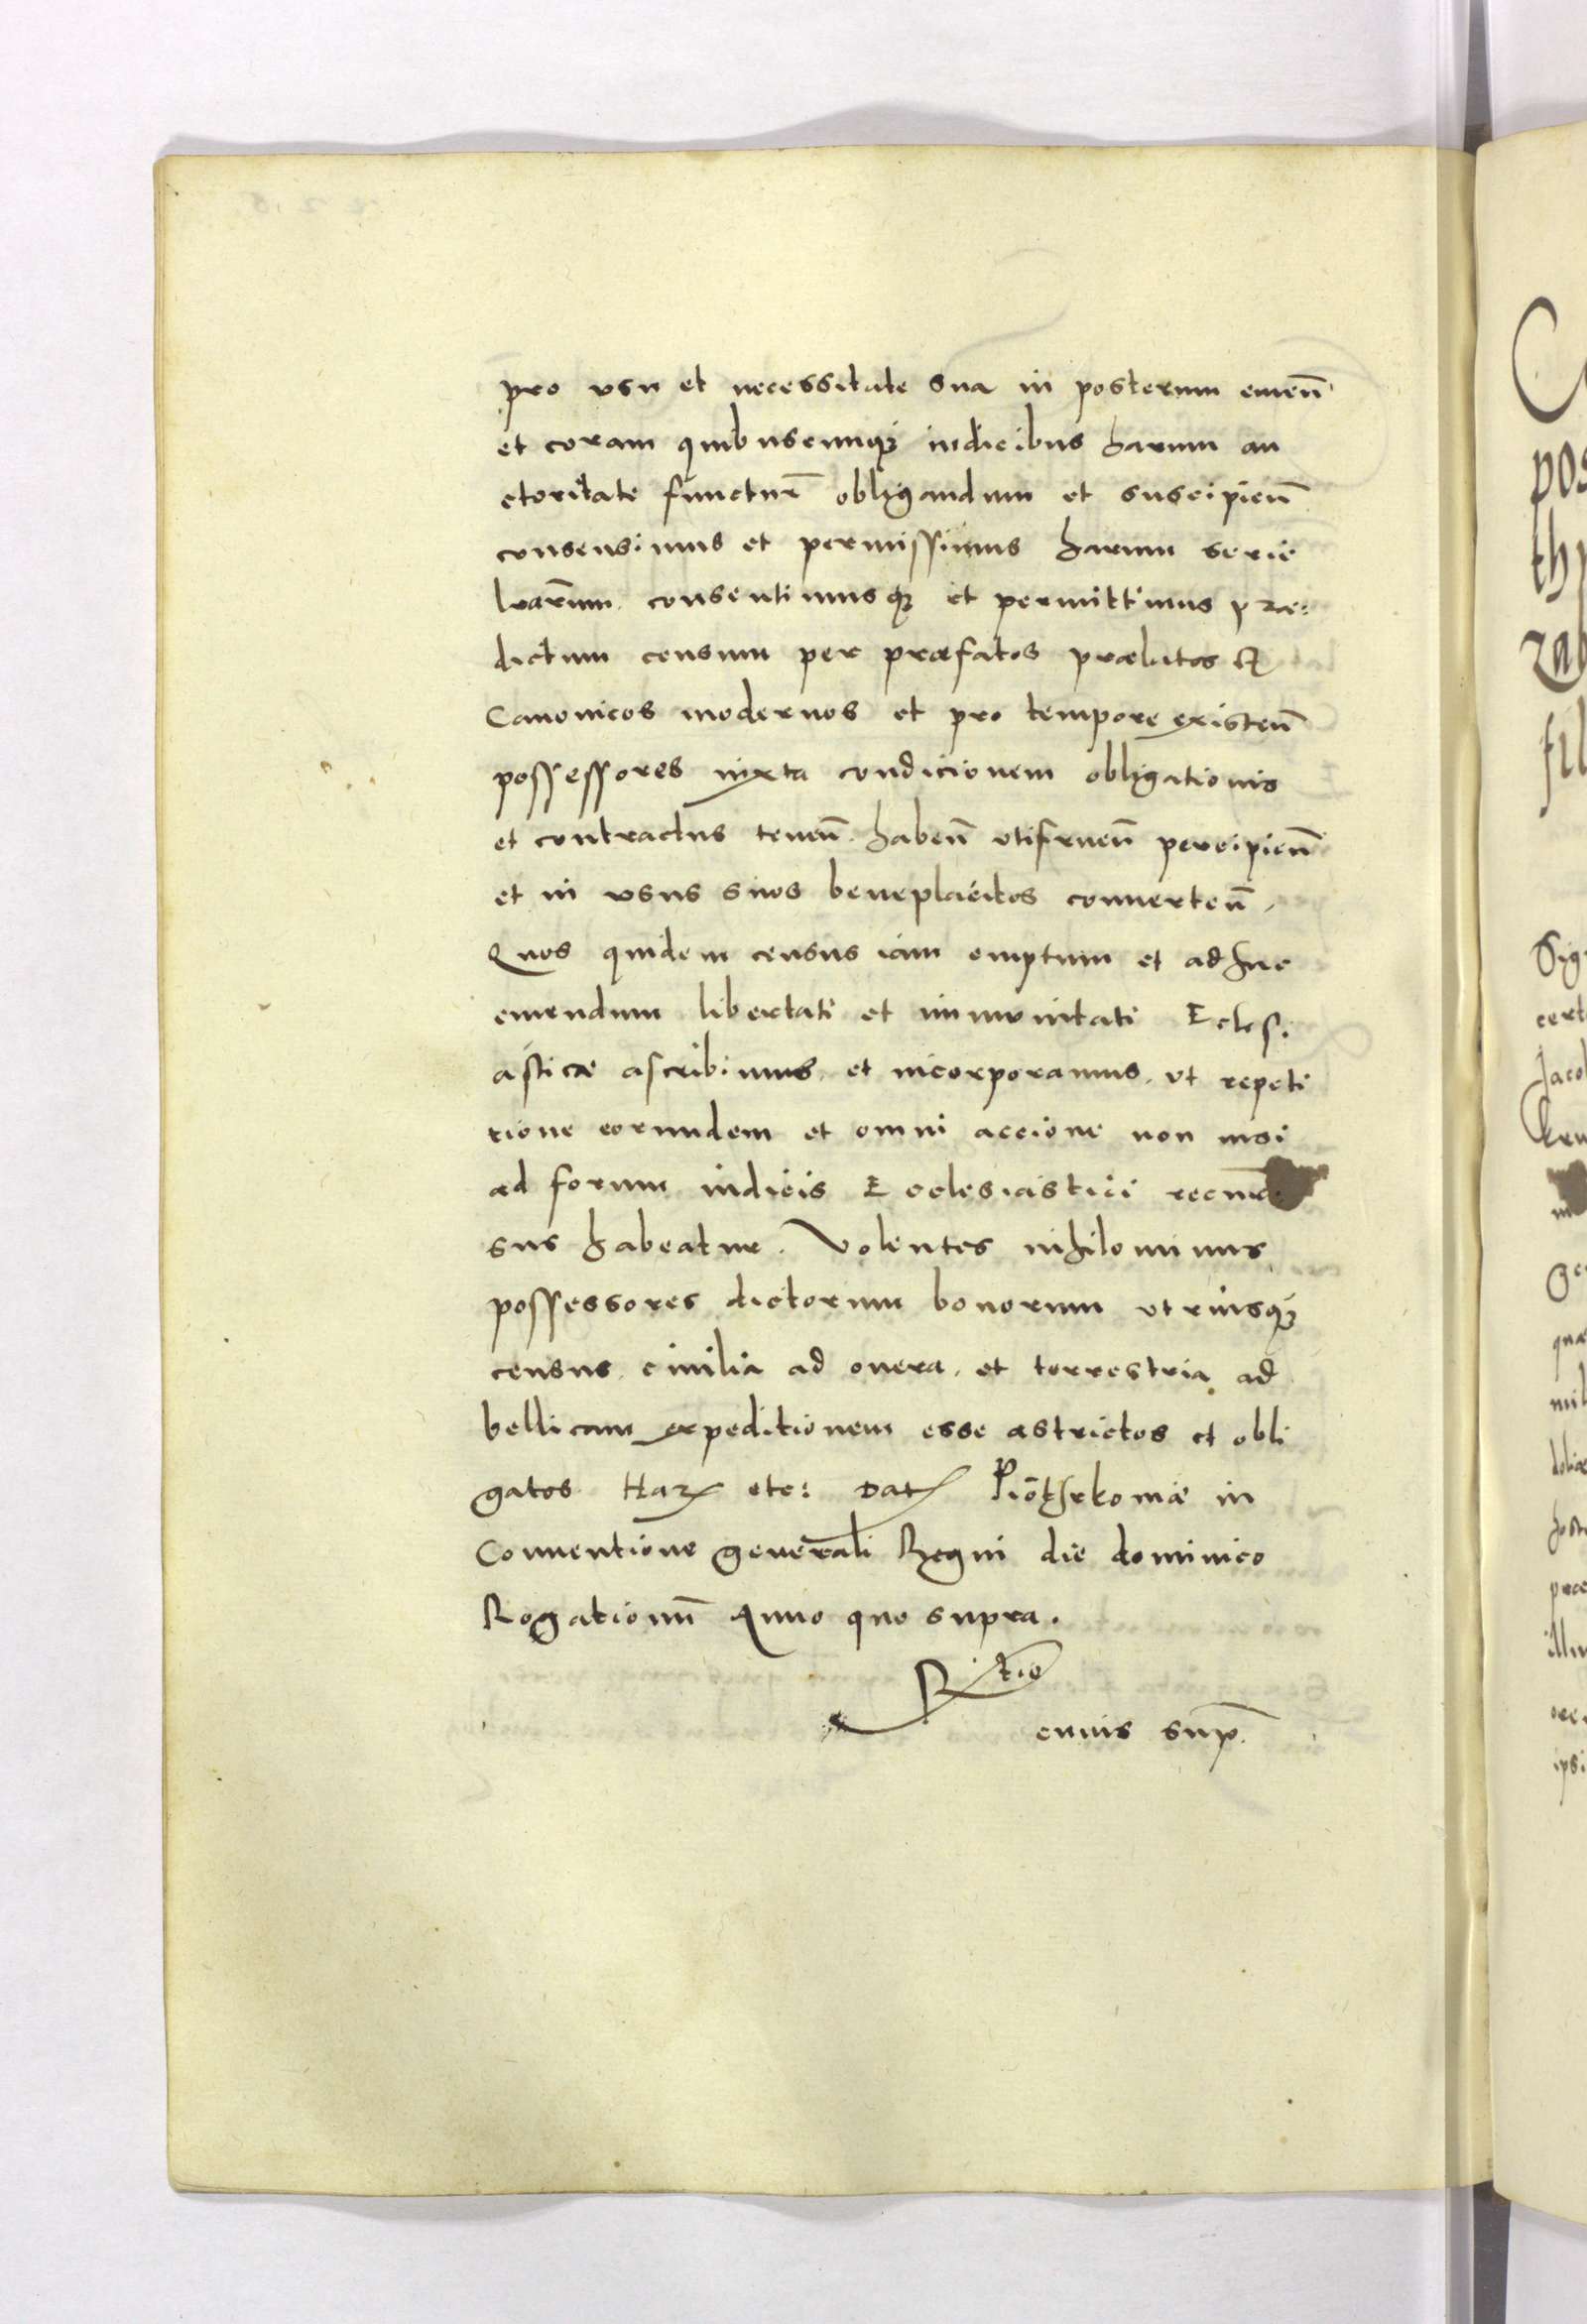 pro vsu et necessitate sua in posterum emen̄
et coram quibuscunqꝫ iudicibus harum au
ctoritate functur̄ obligandum et suscipien̄
consensimus et permissimus harum serie
lrār̄um. consentimusqꝫ et permittimus præ:
dictum censum per præfatos prælatos &
Canonicos modernos et pro tempore existen̄
possessores iuxta condicionem obligationis
et contractus tenen̄. haben̄ vtifruen̄ percipien̄
et in vsus suos beneplacitos conuerten̄.
Quos quidem census iam emptum et adhuc
emendum libertati et immunitati Eclesi
asticæ ascribimus et incorporamus. vt repeti
tione eorundem et omni accione non nisi
ad forum iudicis Ecclesiastici recur
sus habeatur. Volentes nihilominus
possessores dictorum bonorum vtriusqꝫ
census. ciuilia ad onera. et terrestria ad
bellicam expeditionem esse astrictos et obli
gatos Harꝝ etc: Datꝭ Piōtrkoviæ in
Conuentione generali Regni die dominico
Rogationū Anno quo supra.
R̄tio
cuius sup̄.